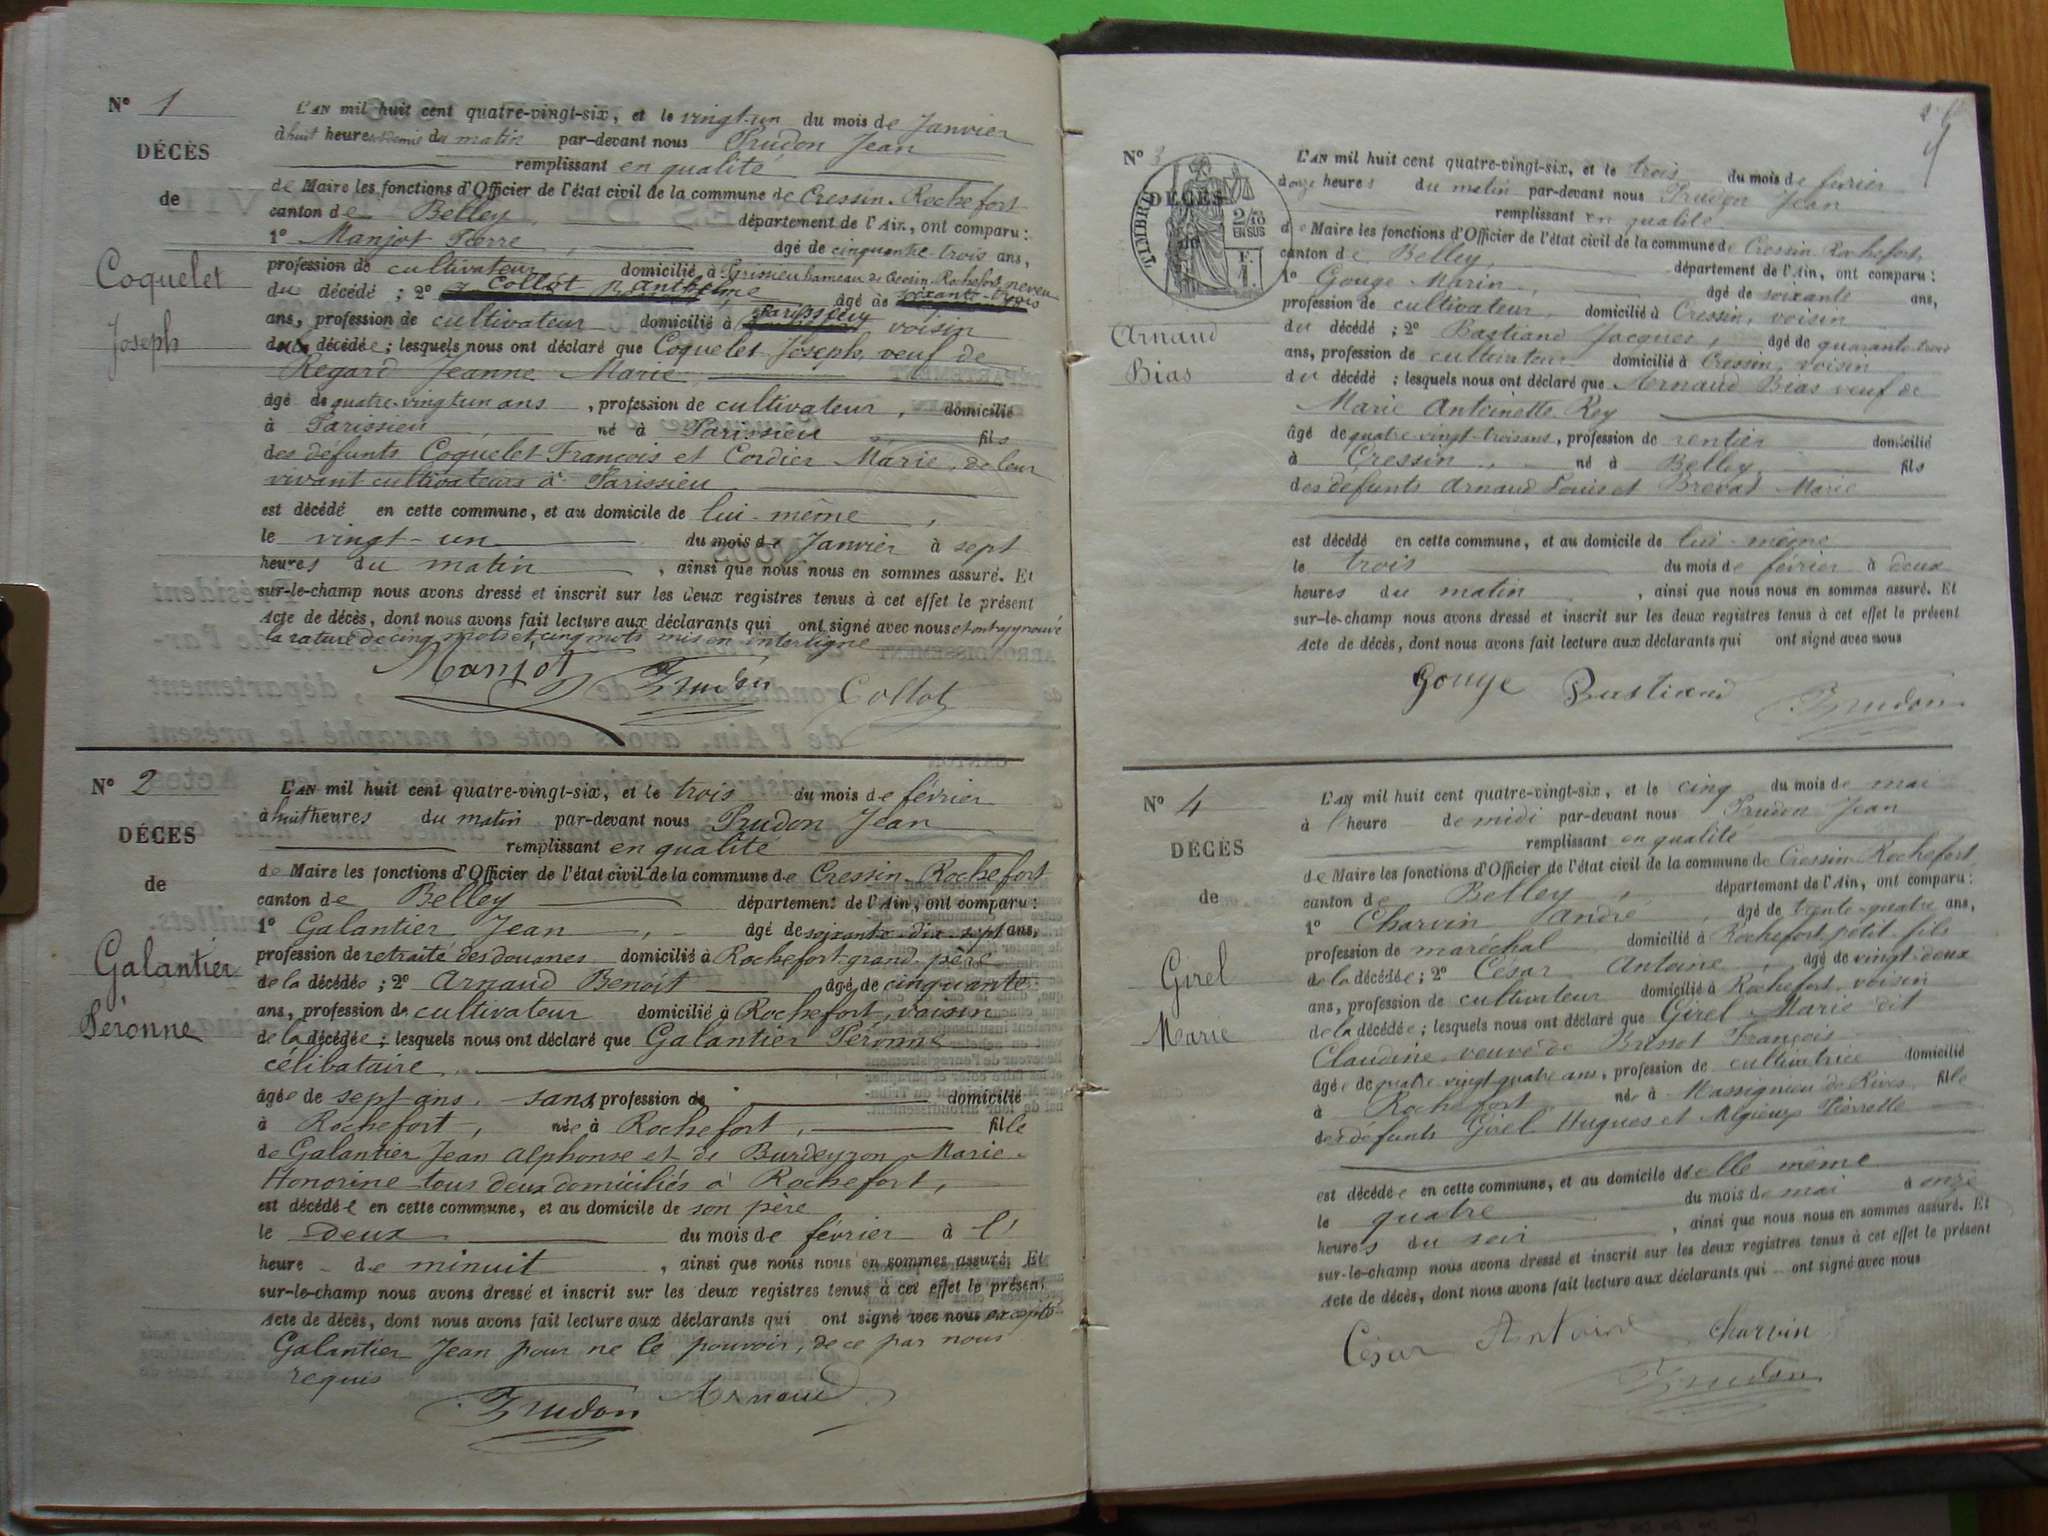 N° 1
DÉCÈS
de
Coquelet
Joseph
L'AN mil huit cent quatre-vingt-six, et le vingt-un du mois de Janvier
à huit heures et demie du matin par-devant nous Prudon Jean
remplissant en qualité
de Maire les fonctions d'Officier de l'état civil de la commune de Cressin-Rochefort
canton de Belley département de l'Ain, ont comparu:
1° Manjot Pierre, âgé de cinquante-trois ans,
profession de cultivateur domicilié à Parissieu hameau de Cressin Rochefort neveu
du décédé; 2° Collot Anthelme âgé de soixante-trois
ans, profession de cultivateur domicilié à voisin
du décédé; lesquels nous ont déclaré que Coquelet Joseph, veuf de
Regard Jeanne Marie
âgé de quatre-vingt un ans, profession de cultivateur, domicilié
à Parissieu, né à Parissieu fils
des défunts Coquelet François et Cordier Marie, de leur
vivant cultivateurs à Parissieu
est décédé en cette commune, et au domicile de lui-même,
le vingt-un du mois de Janvier à sept
heures du matin, ainsi que nous nous en sommes assuré. Et
sur-le-champ nous avons dressé et inscrit sur les deux registres tenus à cet effet le présent
Acte de décès, dont nous avons fait lecture aux déclarants qui ont signé avec nous et ont approuvé
la rature de cinq mots et cinq mots mis en interligne
Manjot Prudon Collot
N° 2
DÉCÈS
de
Galantier
Péronne
L'AN mil huit cent quatre-vingt-six, et le trois du mois de février
à huit heures du matin par-devant nous Prudon Jean
remplissant en qualité
de Maire les fonctions d'Officier de l'état civil de la commune de Cressin-Rochefort
canton de Belley département de l'Ain, ont comparu:
1° Galantier Jean, âgé de soixante-dix-sept ans,
profession de retraité des douanes domicilié à Rochefort grand-père
de la décédée; 2° Arnaud Benoit âgé de cinquante
ans, profession de cultivateur domicilié à Rochefort, voisin
de la décédée; lesquels nous ont déclaré que Galantier Péronne
célibataire
âgée de sept ans, sans profession de domicilié
à Rochefort, née à Rochefort, fille
de Galantier Jean Alphonse et de Burdeyron Marie
Honorine tous deux domiciliés à Rochefort,
est décédée en cette commune, et au domicile de son père
le deux du mois de février à l'
heure de minuit, ainsi que nous nous en sommes assuré. Et
sur-le-champ nous avons dressé et inscrit sur les deux registres tenus à cet effet le présent
Acte de décès, dont nous avons fait lecture aux déclarants qui ont signé avec nous excepté
Galantier Jean pour ne le pouvoir, de ce par nous
requis
Prudon Arnaud
N° 3
TIMBRE
2/10 EN SUS
F. 1.
DÉCÈS
Arnaud
Bias
L'AN mil huit cent quatre-vingt-six, et le trois du mois de février
à onze heures du matin par-devant nous Prudon Jean
remplissant en qualité
de Maire les fonctions d'Officier de l'état civil de la commune de Cressin-Rochefort,
canton de Belley, département de l'Ain, ont comparu:
1° Gouge Marin, âgé de soixante ans,
profession de cultivateur, domicilié à Cressin, voisin
du décédé; 2° Bastiand Jacques, âgé de quarante-trois
ans, profession de cultivateur domicilié à Cressin, voisin
du décédé; lesquels nous ont déclaré que Arnaud Bias veuf de
Marie Antoinette Rey
âgé de quatre-vingt-trois ans, profession de rentier domicilié
à Cressin, né à Belley fils
des défunts Arnaud Louis et Brevat Marie
est décédé en cette commune, et au domicile de lui-même
le trois du mois de février à deux
heures du matin, ainsi que nous nous en sommes assuré. Et
sur-le-champ nous avons dressé et inscrit sur les deux registres tenus à cet effet le présent
Acte de décès, dont nous avons fait lecture aux déclarants qui ont signé avec nous
Gouge Bastiand Prudon
N° 4
DÉCÈS
de
Girel
Marie
L'AN mil huit cent quatre-vingt-six, et le cinq du mois de mai
à l'heure de midi par-devant nous Prudon Jean
remplissant en qualité
de Maire les fonctions d'Officier de l'état civil de la commune de Cressin-Rochefort,
canton de Belley, département de l'Ain, ont comparu:
1° Charvin André, âgé de trente-quatre ans,
profession de maréchal domicilié à Rochefort petit-fils
de la décédée; 2° César Antoine, âgé de vingt-deux
ans, profession de cultivateur domicilié à Rochefort, voisin
de la décédée; lesquels nous ont déclaré que Girel Marie dit
Claudine veuve de François
âgée de quatre vingt quatre ans, profession de cultivatrice domicilié
à Rochefort née à Massignieu de Rives fille
des défunts Girel Hugues et Pierrette
est décédée en cette commune, et au domicile d'elle même
le quatre du mois de mai à onze
heures du soir, ainsi que nous nous en sommes assuré. Et
sur-le-champ nous avons dressé et inscrit sur les deux registres tenus à cet effet le présent
Acte de décès, dont nous avons fait lecture aux déclarants qui ont signé avec nous
César Antoine Charvin
Prudon